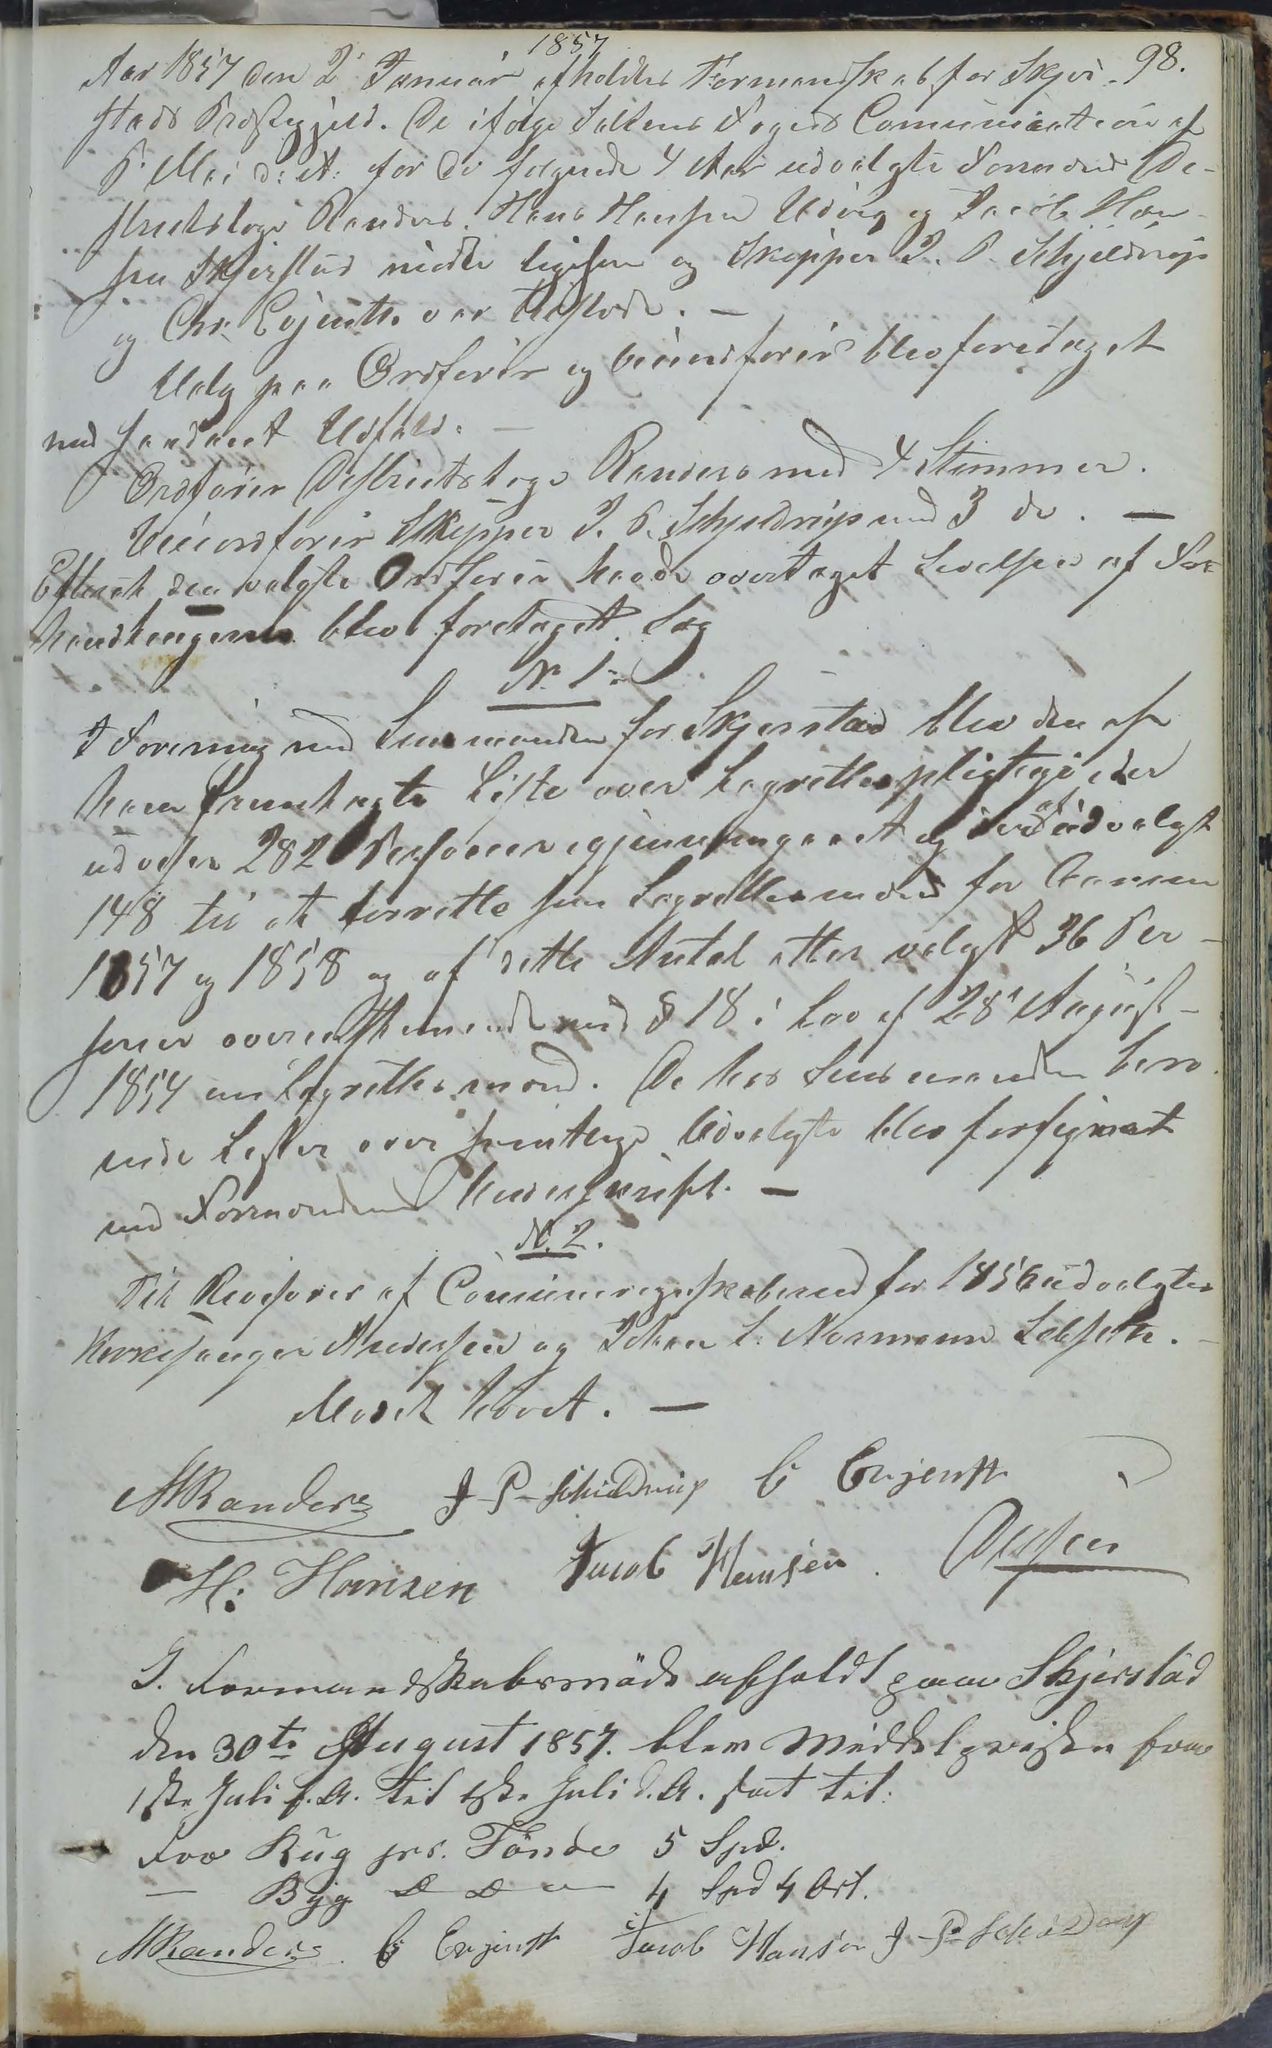 1857
98.
Aar 1857 den 2 Januar afholdtes Formandskab for Skjer-
stads Præstegjeld. De ifølge Saltens Fogeds Comunication af
5 Mai d: A: for de følgende 4 Aar udvalgte Formænd Di-
strictslæge Randers. Hans Hansen Udvig og Jacob Han-
sen Skjerstad mødte ligesom og Skipper J. P. Schjeldrup
og Chr. Evjenth var tilstede. —
Valg paa Ordfører og viceordfører blev foretaget
med saadant Udfald. —
Ordfører Districtslæge Randers med 4 Stemmer.
Viceordfører Skipper J. P. Schjeldrup med 3 do. —
Efterat den valgte Ordfører havde overtaget Ledelsen af For-
handlingerne blev foretaget Sag
N. 1.
I Forening med Lensmanden for Skjerstad blev den af
ham fremlagte Liste over Lagrettespligtige der
udviser 282 Personer gjennemgaaet og deraf udvalgt
148 til at forrette som Lagrettesmænd for Aarene
1857 og 1858 og af dette Antal atter valgt 36 Per-
soner overeenstemmende med § 18 i Lov af 28 August
1854 om Lagrettesmænd. De hos Lensmanden bero-
ende Lister over samtlige Udvalgte blev forsynet
med Formændenes Underskrift. —
N. 2.
Til Revisorer af Communeregnskaberne for 1856 udvalgtes
Kirkesanger Andersen og Johan L. Normann Leifseth. —
Mødet hævet. —
MRanders J-P-Schieldrup C Evjenth
H: Hansen Jacob Hansen
I Formandskabsmøde afholdt paa Skjerstad
den 30te August 1857. blev Middelprisen fra
1ste Juli f.A. til 1ste Juli d.A. sat til:
For Rug pr. Tønde 5 Spd.
— Byg 4 Spd 4 Ort.
MRanders C Evjenth Jacob Hansen J-P-Schieldrup